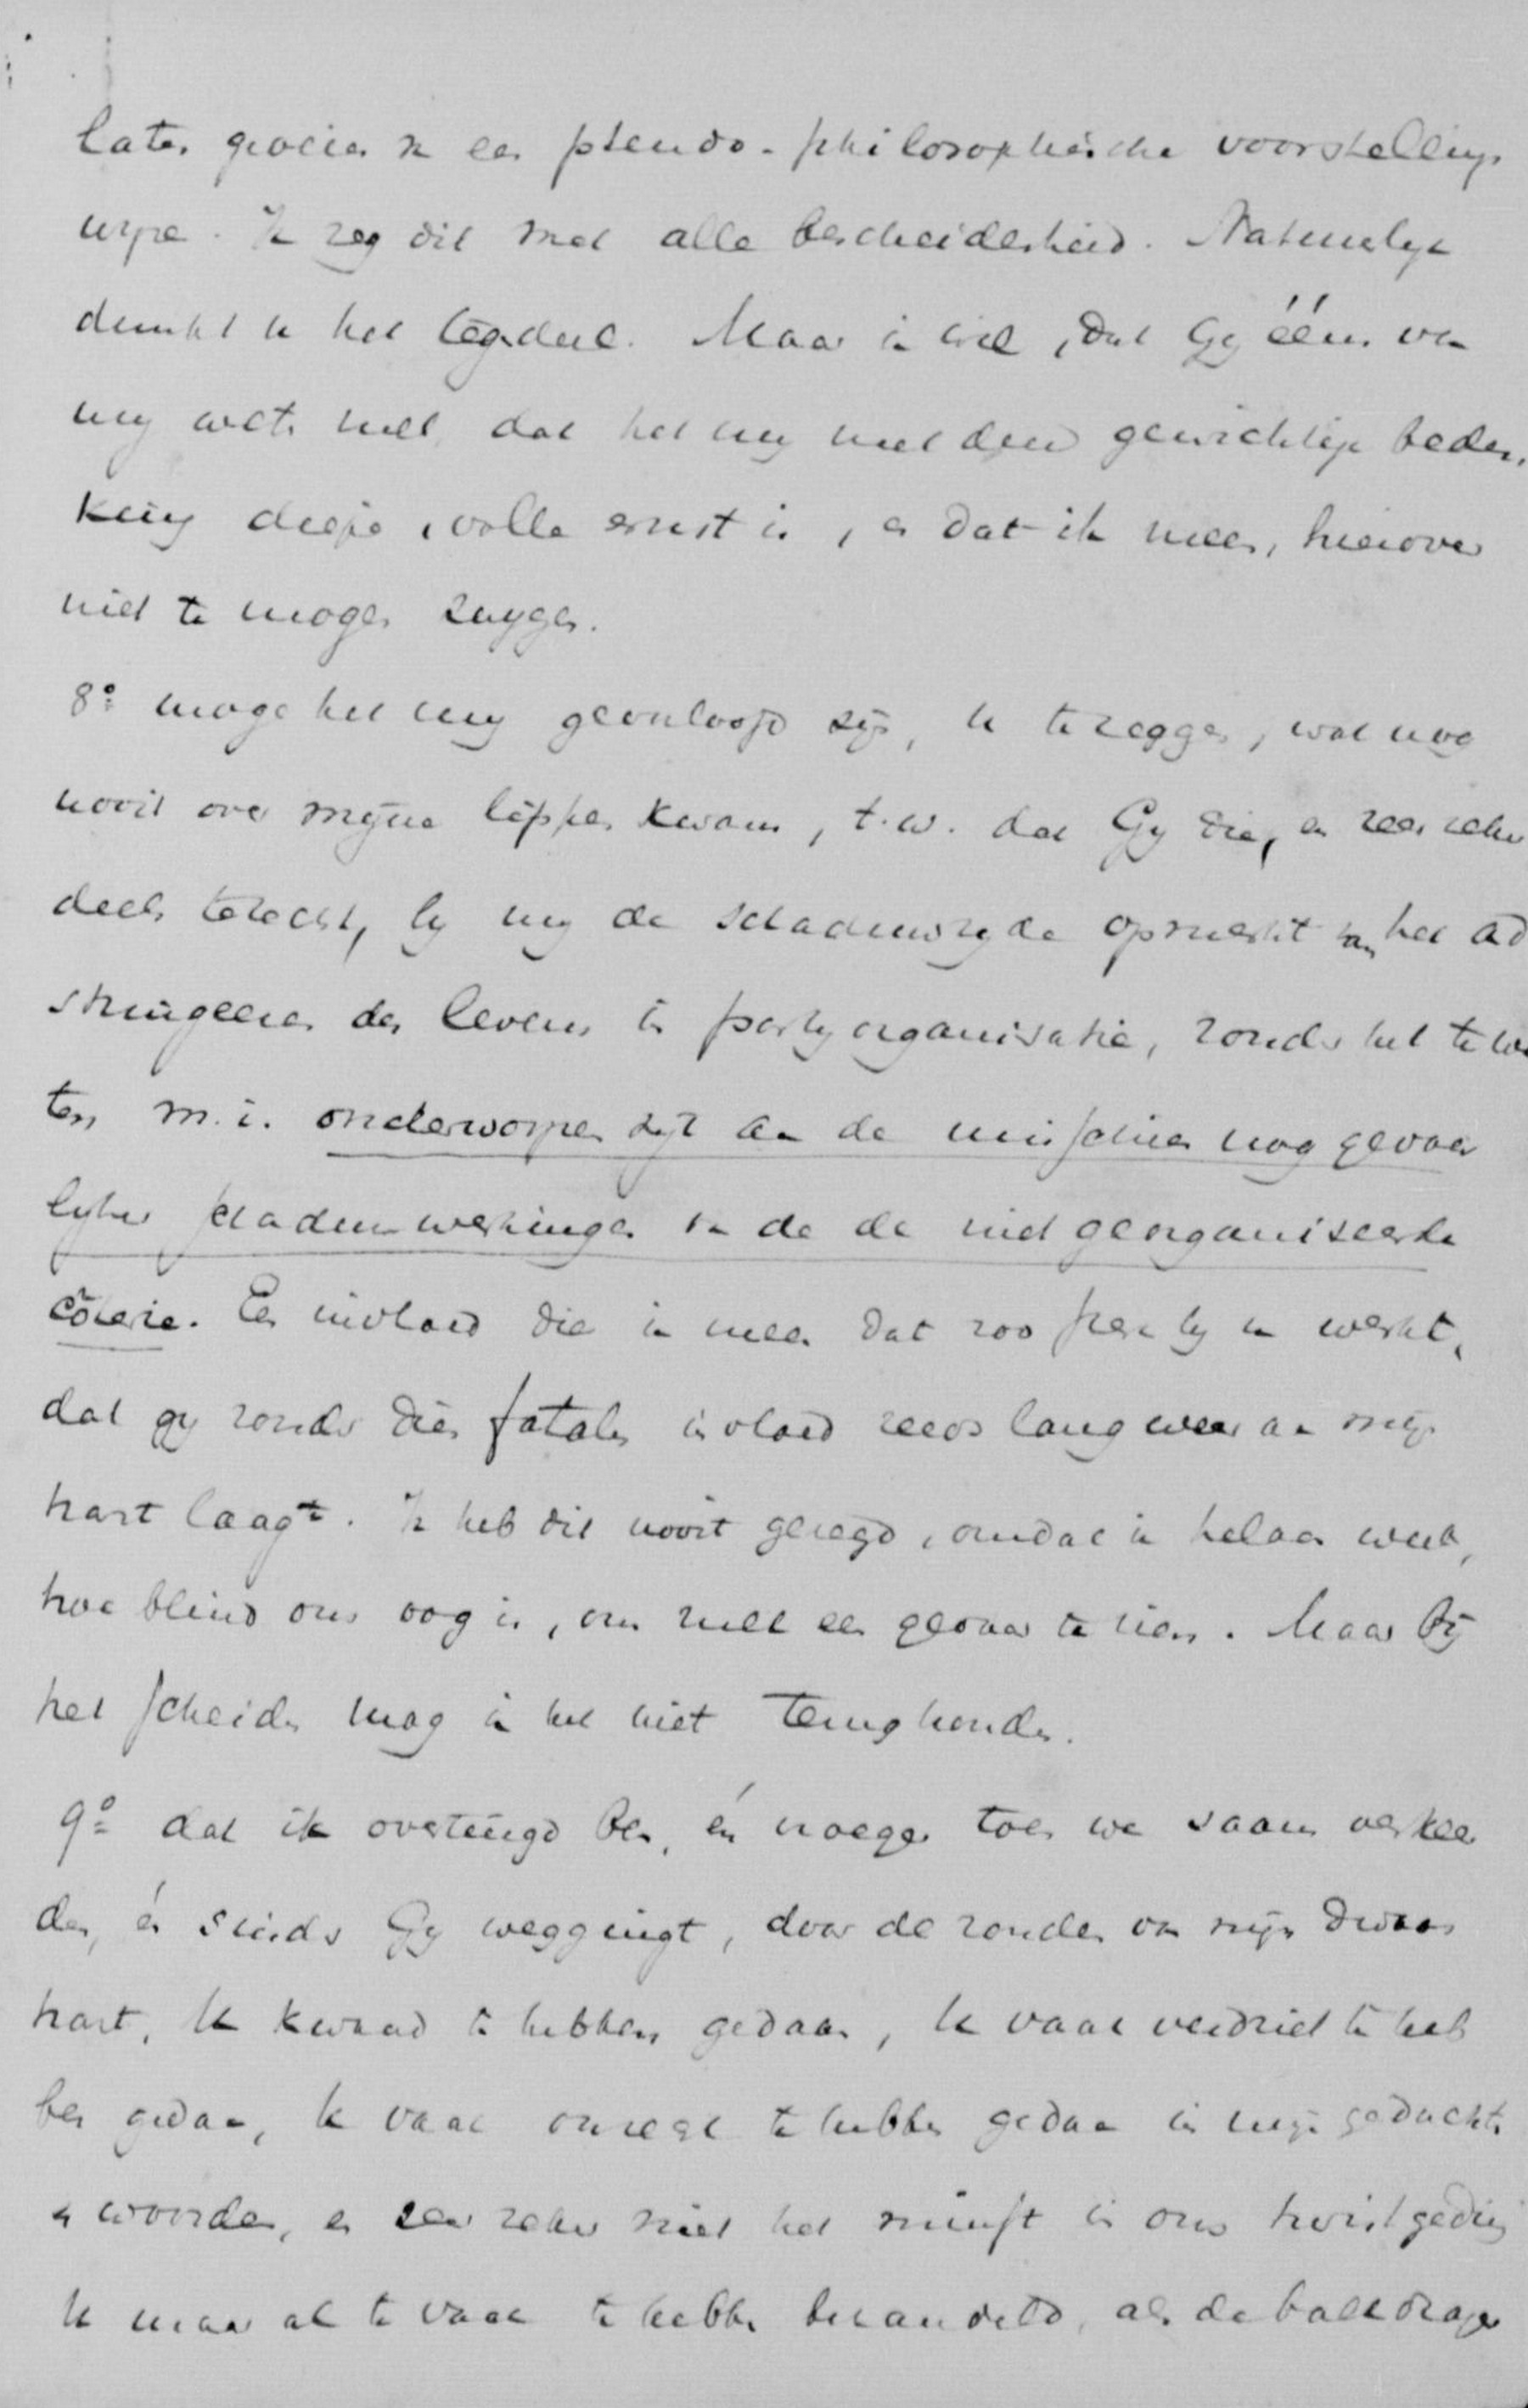 laten groeien in een pseudo-philosophische voorstellings
wijze. Ik zeg dit met alle bescheidenheid. Natuurlijk
dunkt u het tegendeel. Maar ik wil, dat Gij één van
mij weten zult, dat het mij met deze gewichtige beden,
king diepe, volle ernst is, en dat ik meen, hierover
niet te mogen zwijgen.
8º moge het mij geoorloofd zijn, U te zeggen, wat nog
nooit over mijne lippen kwam, t.w. dat Gij die, en zeer zeker
deels terecht, bij mij de schaduwzijde opmerkt van het ad
stringeeren des levens in partijorganisatie, zonder het te we
ten, m.i. onderworpen zijt aan de misschien nog gevaar
lijker schaduwwerkingen van de de niet georganiseerde
côterie. Een invloed die ik meen dat zoo sterk bij u werkt,
dat gij zonder dien fatalen invloed reeds lang weer aan mijn
hart laagt. Ik heb dit nooit gezegd, omdat ik helaas weet,
hoe blind ons oog is, om zulk een gevaar te zien. Maar bij
het scheiden mag ik het niet terughouden.
9º dat ik overtuigd ben, én vroeger toen we saam verkeer
den, én sinds Gij weggingt, door de zonde van mijn dwaas
hart, U kwaad te hebben gedaan, U vaak verdriet te heb
ben gedaan, U vaak onrecht te hebben gedaan in mijn gedachten
en woorden, en zeer zeker niet het minst in ons twistgeding
U maar al te vaak te hebben behandeld, als de balkdrager